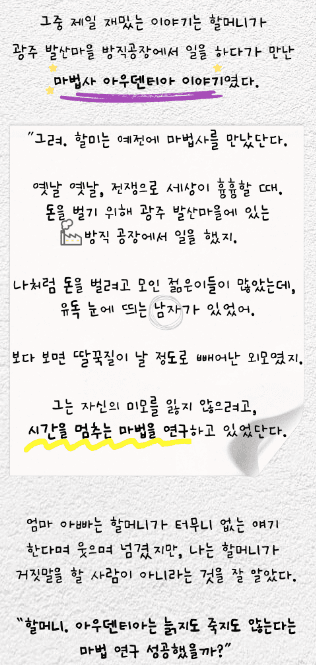 그중 제일 재밌는 이야기는 할머니가
광주 발산마을 방직공장에서 일을 하다가 만난
마법사 아우덴티아 이야기였다.
"그려. 할미는 예전에 마법사를 만났단다.
옛날 옛날, 전쟁으로 세상이 흉흉할 때.
돈을 벌기 위해 광주 발산마을에 있는
방직 공장에서 일을 했지.
나처럼 돈을 벌려고 모인 젊은이들이 많았는데,
유독 눈에 띄는 남자가 있었어.
보다 보면 딸꾹질이 날 정도로 빼어난 외모였지.
그는 자신의 미모를 잃지 않으려고,
시간을 멈추는 마법을 연구하고 있었단다.
엄마 아빠는 할머니가 터무니 없는 얘기
한다며 웃으며 넘겼지만, 나는 할머니가
거짓말을 할 사람이 아니라는 것을 잘 알았다.
"할머니. 아우덴티아는 늙지도 죽지도 않는다는
마법 연구 성공했을까?"